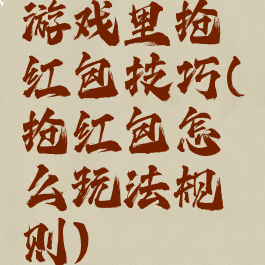 游戏里抢
红包技巧(
抢红包怎
么玩法规
则)